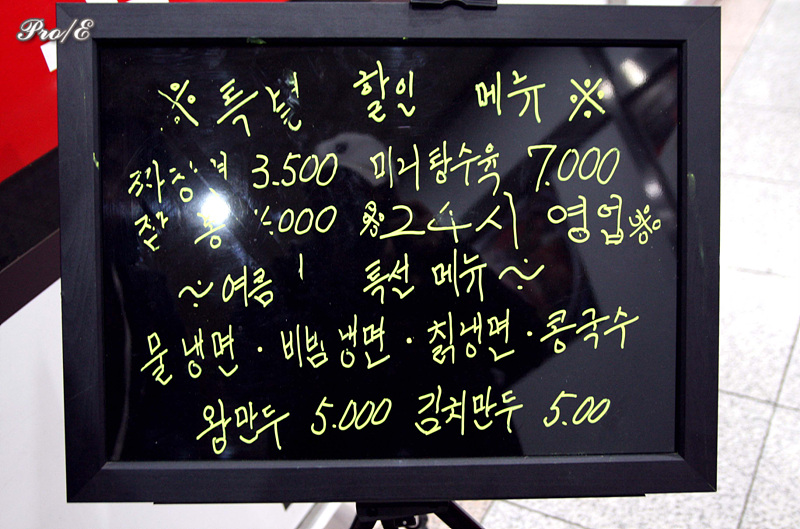 Pro/E
※ 특별 할인 메뉴 ※
짜장면 3.500 미니탕수육 7.000
짬뽕 000 ※24시 영업※
~여름 특선 메뉴~
물냉면 · 비빔냉면 · 칡냉면 · 콩국수
왕만두 5.000 김치만두 5.00